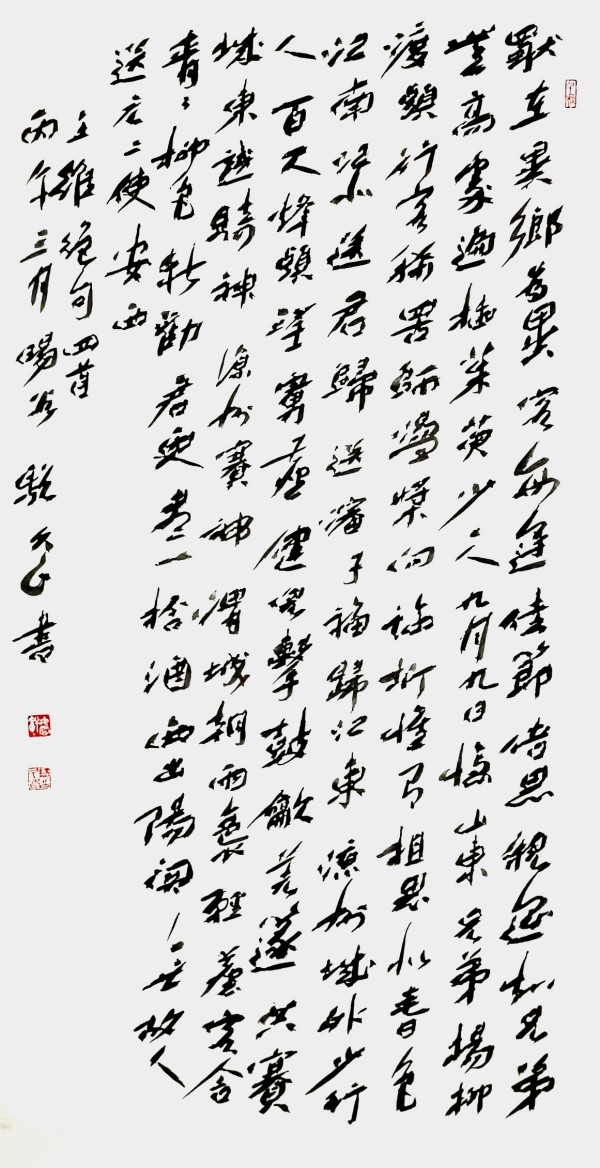 獨在異鄉為異客每逢佳節倍思親遥知兄弟
登高處遍插茱萸少一人九月九日憶山東兄弟楊柳
渡頭行客稀罟師盪槳向臨圻惟有相思似春色
江南江北送君歸送瀋子福歸江東涼州城外少行
人百尺烽頭望虜塵健兒擊鼓吹羌笛共賽
城東越騎神涼州賽神渭城朝雨裛輕塵客舍
青々柳色新勸君更盡一杯酒西出陽關無故人
送元二使安西
王維絕句四首
丙午三月陽谷書